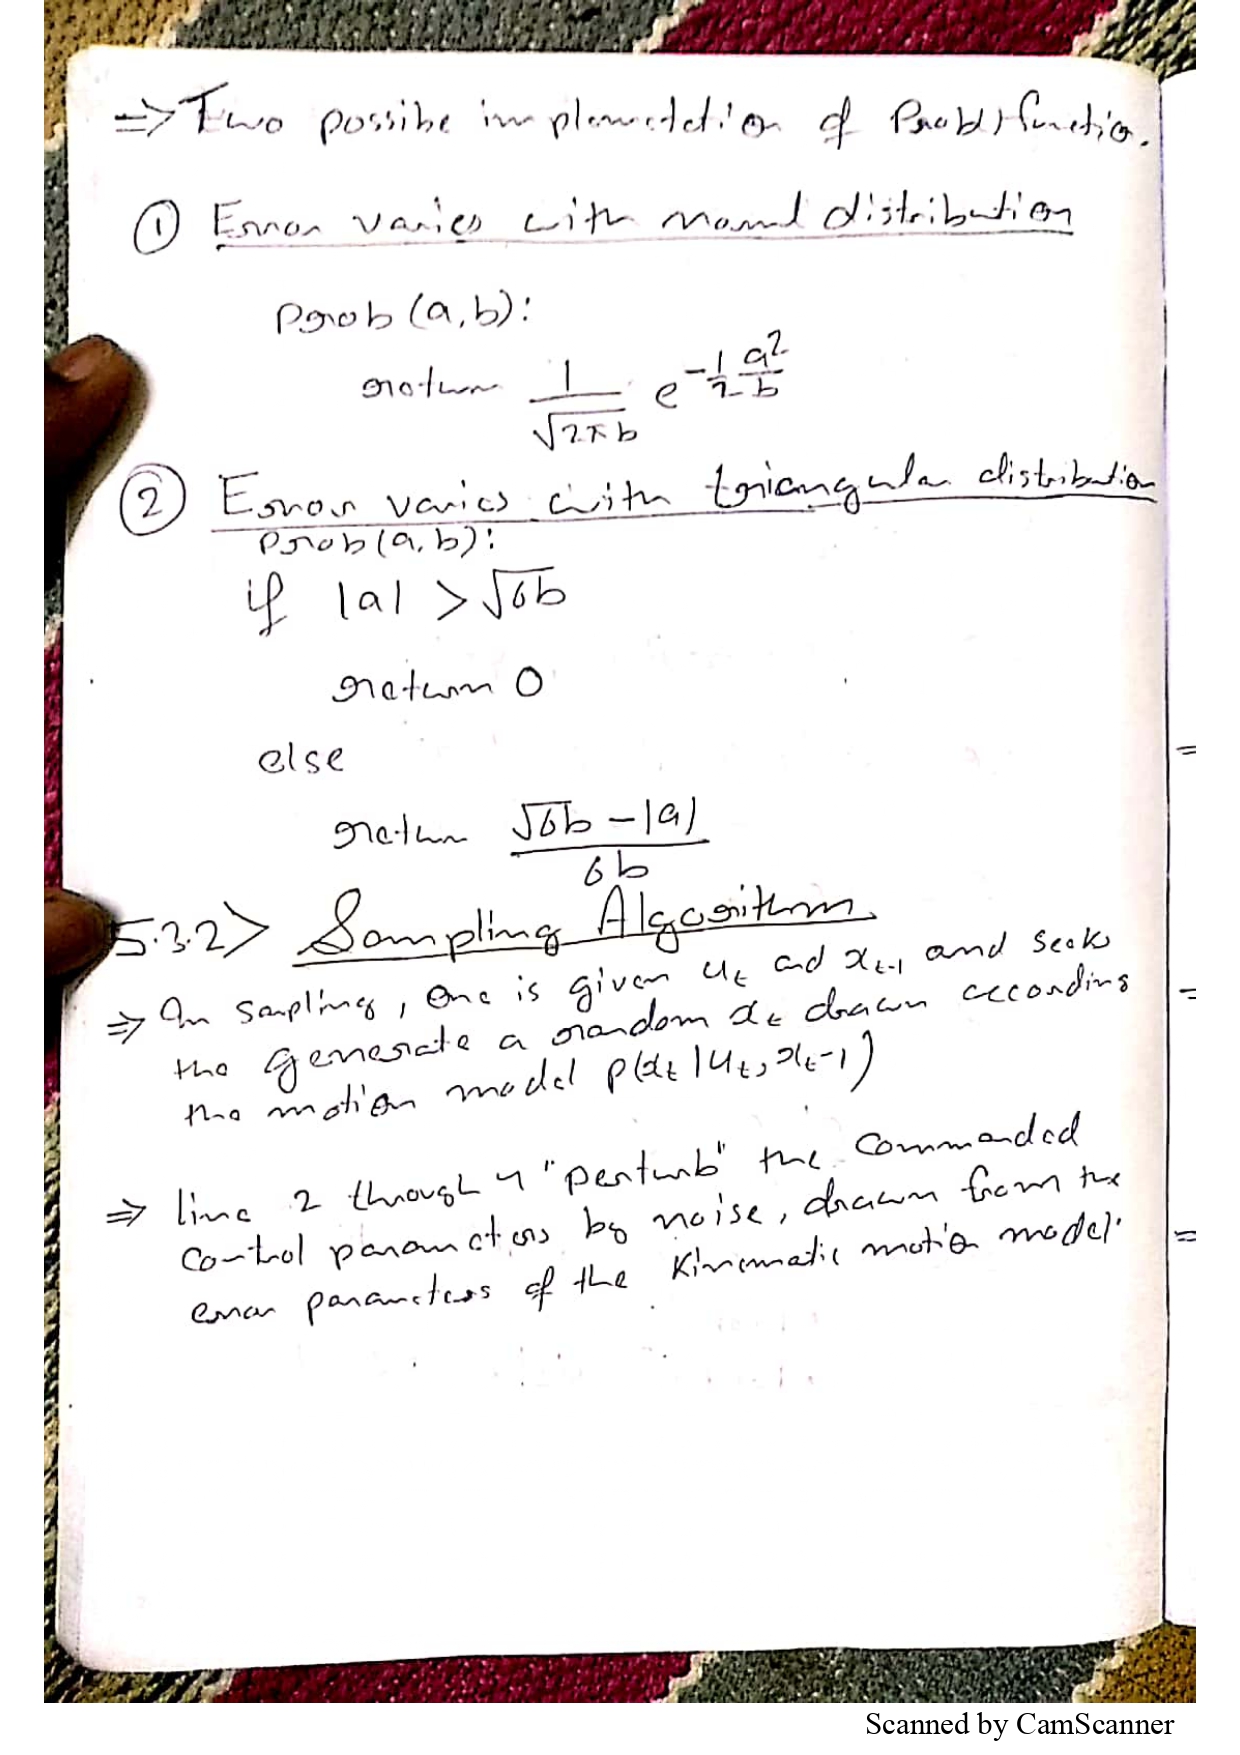 ⇒ Two possibe implemetation of Prob() functio.
① Error varies with normal distribution
Prob (a,b):
return 1/√2πb e^-1/2 a²/b
② Error varies with triangular distribution
Prob(a,b):
if |a| > √6b
return 0
else
return √6b - |a| / 6b
5.3.2> Sampling Algorithm.
⇒ In sapling, one is given u_t and x_t-1 and seeks
the generate a random x_t drawn according
the motion model p(x_t | u_t, x_t-1)
⇒ line 2 through 4 "perturb" the commanded
control parameters by noise, drawn from the
error parameters of the kinematic motion model.
Scanned by CamScanner